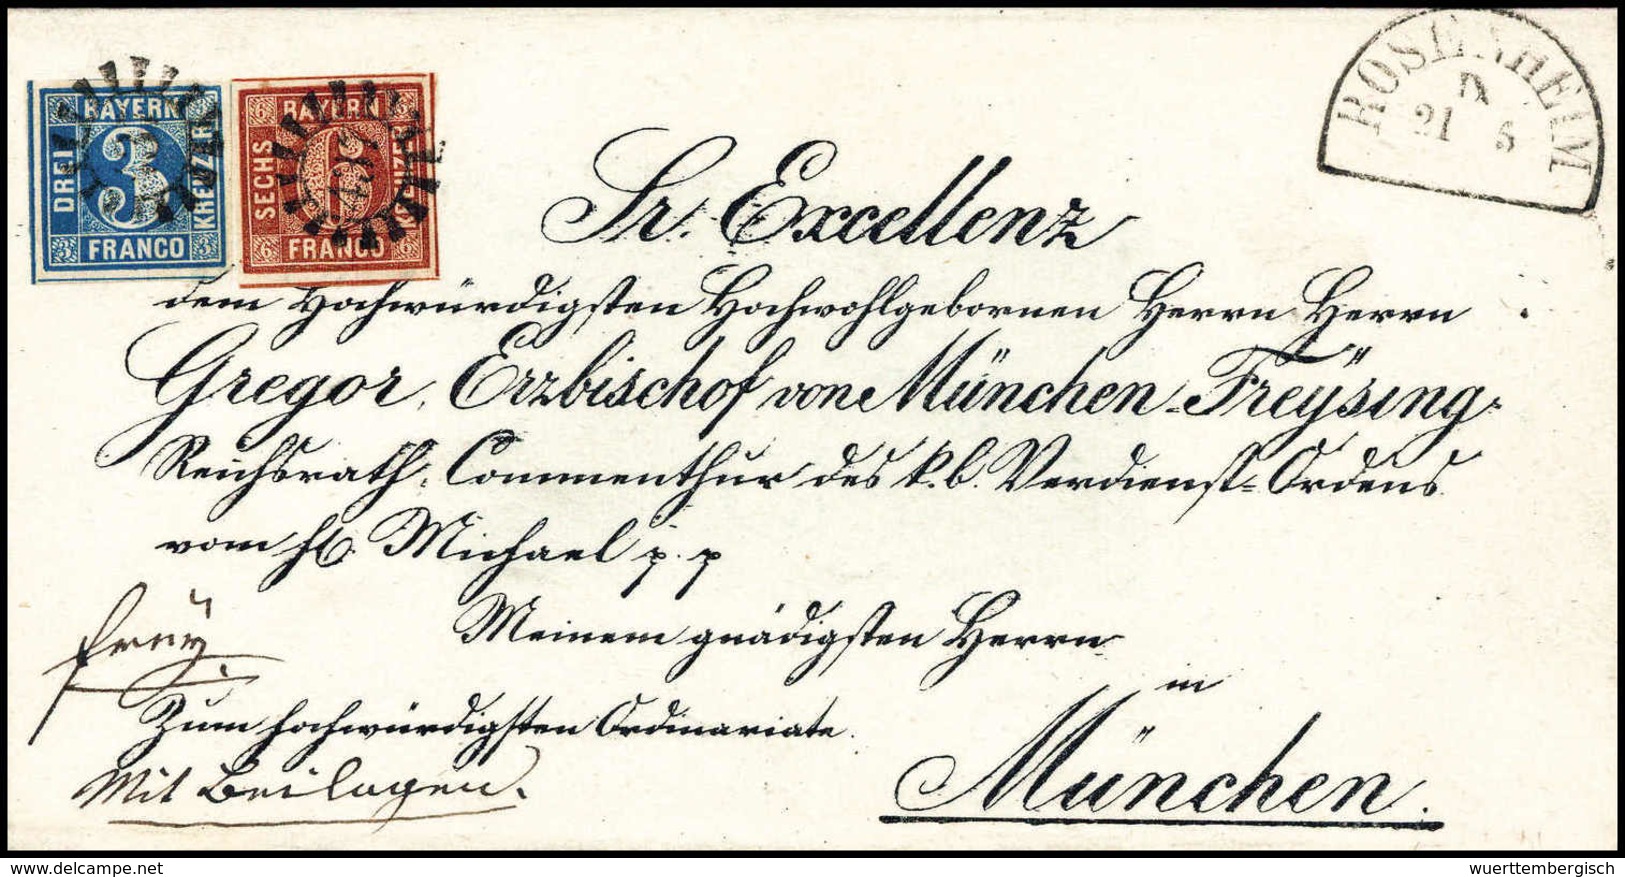 BAYERN
DREI
3
KREUZER
FRANCO
BAYERN
SECHS
6
KREUZER
FRANCO
ROSENHEIM
21 5
Sr. Excellenz
dem Hochwürdigsten Hochwohlgebornen Herrn Herrn
Gregor, Erzbischof von München-Freÿsing,
Reichsrath, Commenthur des k. b. Verdienst-Ordens
vom hl. Michael p. p
Meinem gnädigsten Herrn
freÿ.
in
Zum hochwürdigsten Ordinariate.
Mit Beilagen.
München.
wuerttembergisch